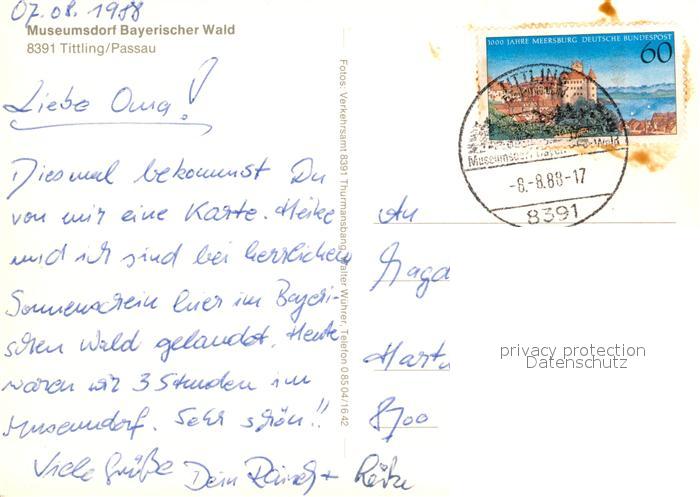 07.08.1988
Museumsdorf Bayerischer Wald
8391 Tittling/Passau
Liebe Oma!
Diesmal bekommst Du
von mir eine Karte. Heike
und ich sind bei herrlichem
Sonnenschein hier im Bayeri-
schen Wald gelandet. Heute
waren wir 3 Stunden im
Museumdorf. Sehr schön!!
Viele Grüße Dein +
Fotos: Verkehrsamt 8391 Thurmansbang, Walter Wührer, Telefon 0 85 04/16 42
1000 JAHRE MEERSBURG DEUTSCHE BUNDESPOST
60
TITTLING
Museumsdorf Wald
-8.-8.88-17
8391
An
8700
privacy protection
Datenschutz